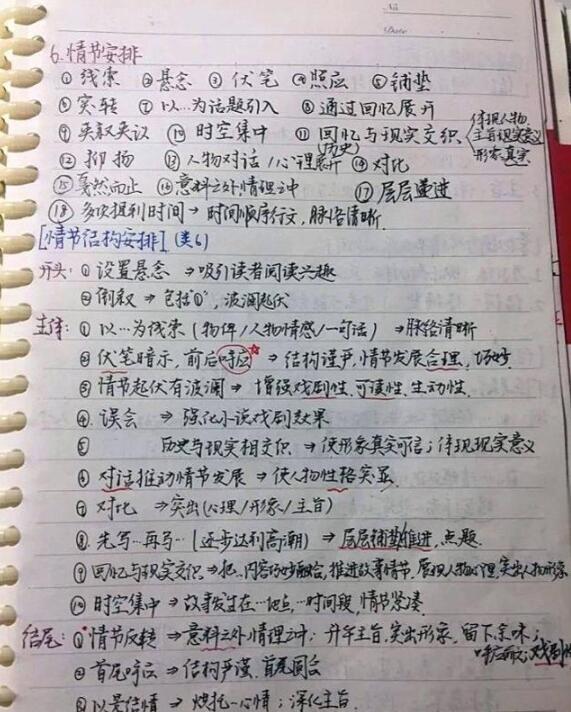 No
Date
6.情节安排
①线索 ②悬念 ③伏笔 ④照应 ⑤铺垫
⑥突转 ⑦以…为话题引入 ⑧通过回忆展开
⑨夹叙夹议 ⑩时空集中 ⑪回忆与现实交织 体现人物
(历史) 主旨现实意义
形象真实
⑫抑扬 ⑬人物对话/心理展开 ⑭对比
⑮戛然而止 ⑯意料之外情理之中 ⑰层层递进
⑱多次提到时间→时间顺序行文,脉络清晰
[情节结构安排](类6)
开头:①设置悬念⇒吸引读者阅读兴趣
②倒叙⇒包括"①",波澜起伏
主体:①以…为线索(物件/人物情感/一句话)⇒脉络清晰
②伏笔暗示,前后呼应☆⇒结构谨严,情节发展合理,巧妙
③情节起伏有波澜⇒增强戏剧性、可读性、生动性.
④误会⇒强化小说戏剧效果
⑤ 历史与现实相交织⇒使形象真实可信;体现现实意义
⑥对话推动情节发展⇒使人物性格突显
⑦对比⇒突出(心理/形象/主旨)
⑧先写…再写…(逐步达到高潮)⇒层层铺垫推进,点题
⑨回忆与现实交织⇒把..内容巧妙融合,推进故事情节,展现人物心理,突出人物形象
⑩时空集中⇒故事发生在…地点…时间段,情节紧凑.
结尾:①情节反转⇒意料之外情理之中;升华主旨,突出形象,留下余味;
戏剧性
②首尾呼应⇒结构严谨,首尾圆合
③以景结情⇒烘托…心情;深化主旨